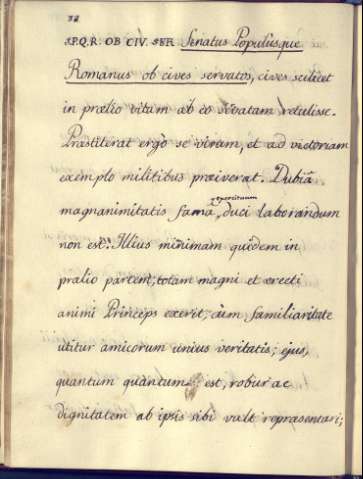 32
S.P.Q.R. OB CIV. SER. Senatus Populusque
Romanus ob cives servatos, cives scilicet
in prælio vitam ab eo servatam retulisse.
Præstiterat ergò se virum, et ad victoriam
exemplo militibus præiverat. Dubiâ
exercituum
magnanimitatis famâ, duci laborandum
non est. Illius minimam quidem in
prælio partem, totam magni et erecti
animi Princeps exerit, cùm familiaritate
utitur amicorum unius veritatis; ejus,
quantum quantum est, robur ac
dignitatem ab ipsis sibi vult repræsentari;